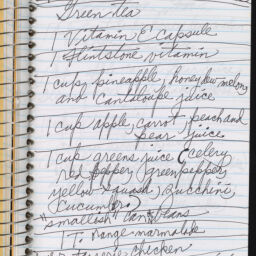 Green tea
1 Vitamin E capsule
1 Flintstone vitamin
1 cup, pineapple, honeydew melon,
and cantaloupe juice
1 cup apple, carrot peach and
pear juice
1 cup greens juice (celery
red pepper, green pepper,
yellow squash, zucchini,
cucumber)
"smallish" can beans
1 T. orange marmalade
chicken